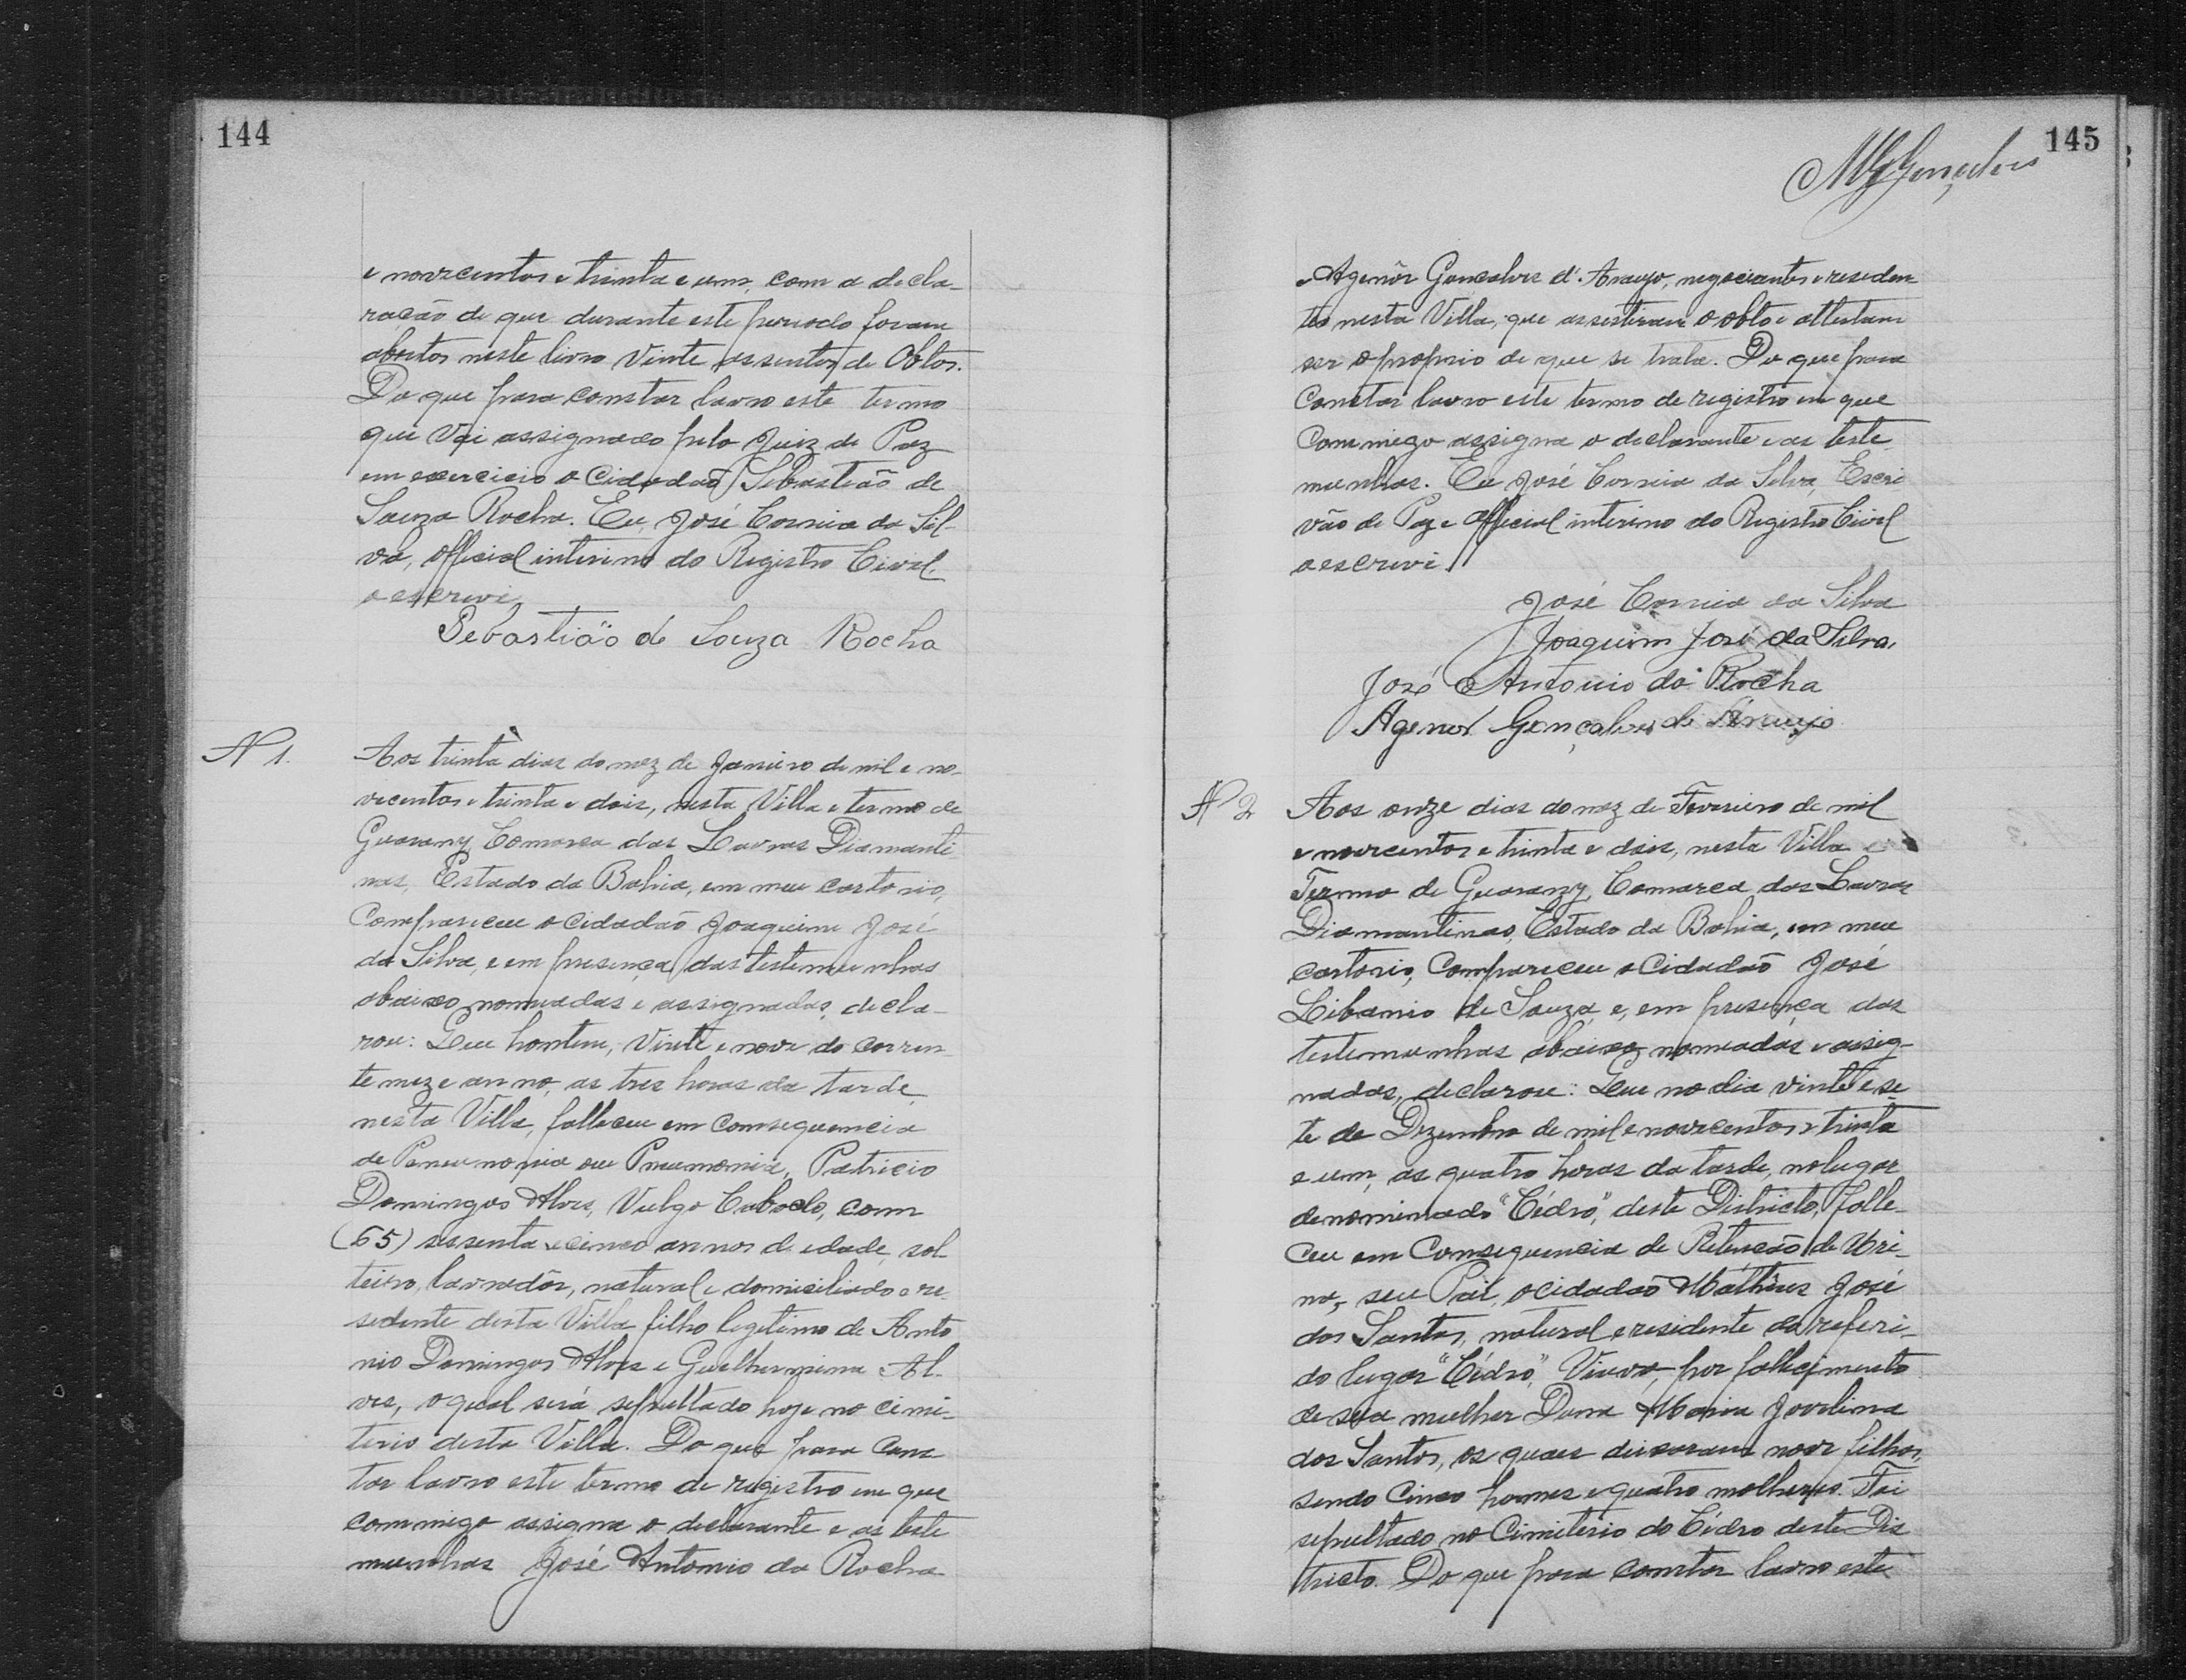 144
e novecentos e trinta e um, com a decla-
ração de que durante este periodo foram
abertos neste livro vinte assentos de Obtos.
Do que para constar lavro este termo
que vai assignado pelo Juiz de Paz
em exercicio o Cidadão Sebastião de
Souza Rocha. Eu, José Correia da Sil-
va, official interino do Registro Civil
o escrevi,
Sebastião de Souza Rocha
Nº 1.
Aos trinta dias do mez de Janeiro de mil e no-
vecentos e trinta e dois, nesta Villa e termo de
Guarany, Comarca das Lavras Diamanti-
nas, Estado da Bahia, em meu cartorio,
Compareceu o cidadão Joaquim José
da Silva, e em presença das testemunhas
abaixo nomeadas e assignadas, decla-
rou: Que hontem, vinte e nove do corren-
te mez e anno, as tres horas da tarde,
nesta Villa, falleceu em comsequencia
de Pneumonia ou Pneumonia, Patricio
Domingos Alves, Vulgo Caboclo, com
(65) sessenta e cinco annos de edade, sol-
teiro, lavradôr, natural e domiciliado e re-
sidente desta Villa, filho legitimo de Anto
nio Domingos Alves e Guilhermina Al-
ves, o qual será sepultado hoje no cimi-
terio desta Villa. Do que para cons
tar lavro este termo de registro em que
commigo assigna o declarante e as teste
munhas José Antonio da Rocha
145
MGGonçalves
e Agenôr Goncalves d'Araujo, negociantes e residen
tes nesta Villa, que assestiram o obto e attestam
ser o proprio de que se trata. Do que para
Constar lavro este termo de registro em que
Commigo assigna o declarante e as teste
munhas. Eu José Correia da Silva, Escri
vão de Paz e Official interino do Registro Civil
o escrevi.
José Correia da Silva
Joaquim José da Silva.
José Antonio da Rocha
Agenor Gonçalves de Araujo
Nº 2
Aos onze dias do mez de Fevereiro de mil
e novecentos e trinta e dois, nesta Villa e
Termo de Guarany, Comarca das Lavras
Diamantinas, Estado da Bahia, em meu
cartorio, Compareceu o Cidadão José
Libanio de Souza, e, em presença das
testemunhas abaixo nomeadas e assig-
nadas, declarou: Que no dia vinte e se-
te de Dezembro de mil e novecentos e trinta
e um, as quatro horas da tarde, no lugar
denominado "Cédro", deste Districto, falle-
ceu em Comsequencia de Retenção de Uri-
na, seu Pai, o cidadão Matheus José
dos Santos, natural e residente do referi-
do lugar "Cédro", Viuvo, por fallecimento
de sua mulher Dona Maria Jovelina
dos Santos, os quaes deixaram nove filhos,
sendo Cinco homes e quatro molheres. Foi
sepultado no Cimiterio do Cédro deste Dis
tricto. Do que para constar lavro este